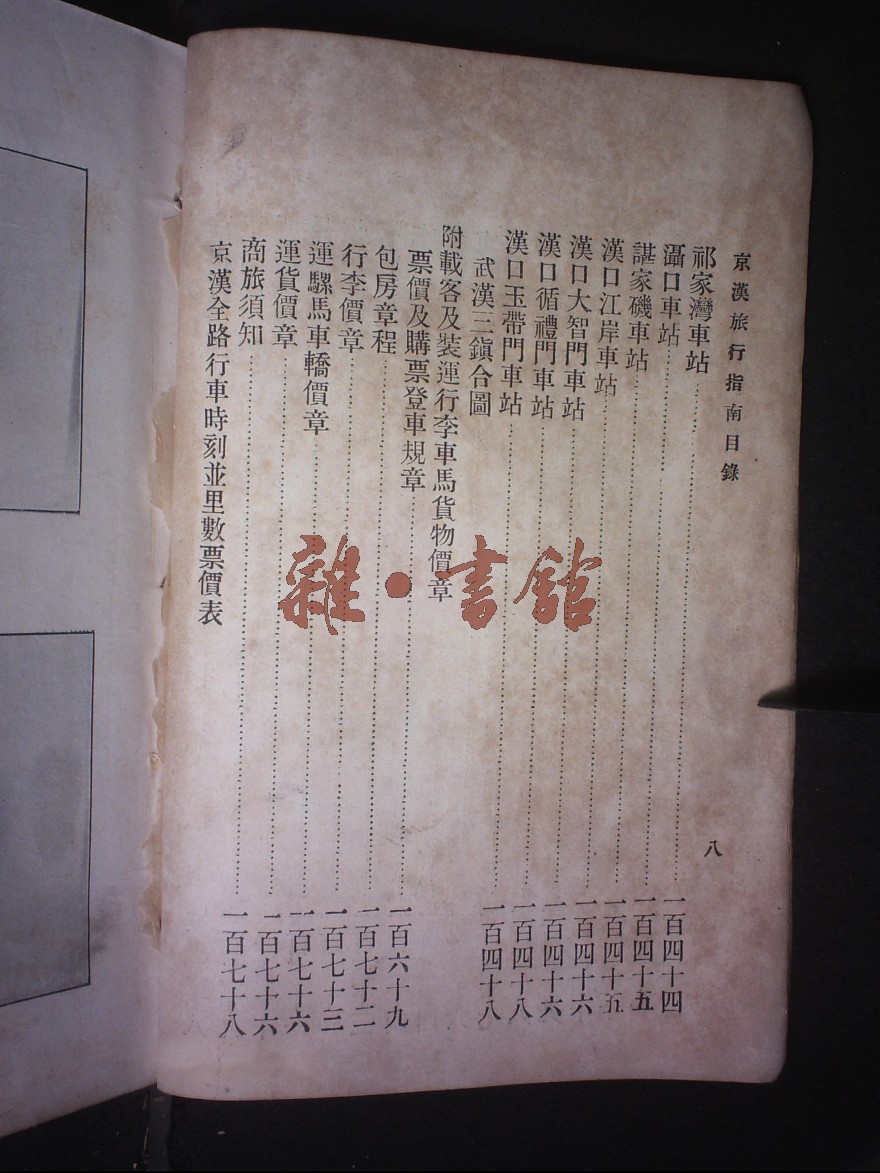 京漢旅行指南目錄 八
祁家灣車站……一百四十四
灄口車站……一百四十五
諶家磯車站……一百四十五
漢口江岸車站……一百四十六
漢口大智門車站……一百四十六
漢口循禮門車站……一百四十八
漢口玉帶門車站……一百四十八
武漢三鎭合圖
附載客及裝運行李車馬貨物價章
票價及購票登車規章……一百六十九
包房章程……一百七十二
行李價章……一百七十三
運騾馬車轎價章……一百七十六
運貨價章……一百七十六
商旅須知……一百七十八
京漢全路行車時刻並里數票價表
雜·書館